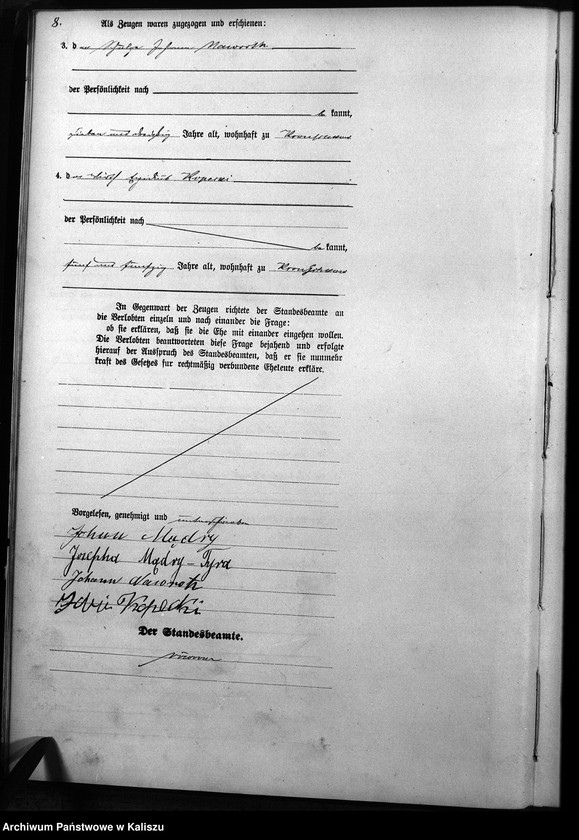 8.
Als Zeugen waren zugezogen und erschienen:
3. der Johann Nawroth
der Persönlichkeit nach
be kannt,
sieben und dreißig Jahre alt, wohnhaft zu
4. der Kopecki
der Persönlichkeit nach
be kannt,
fünf und fünfzig Jahre alt, wohnhaft zu
In Gegenwart der Zeugen richtete der Standesbeamte an
die Verlobten einzeln und nach einander die Frage:
ob sie erklären, daß sie die Ehe mit einander eingehen wollen.
Die Verlobten beantworteten diese Frage bejahend und erfolgte
hierauf der Ausspruch des Standesbeamten, daß er sie nunmehr
kraft des Gesetzes für rechtmäßig verbundene Eheleute erkläre.
Vorgelesen, genehmigt und unterschrieben
Johann Mądry
Josepha Mądry - Pyrd
Johann Nawroth
Kopecki
Der Standesbeamte.
Archiwum Państwowe w Kaliszu